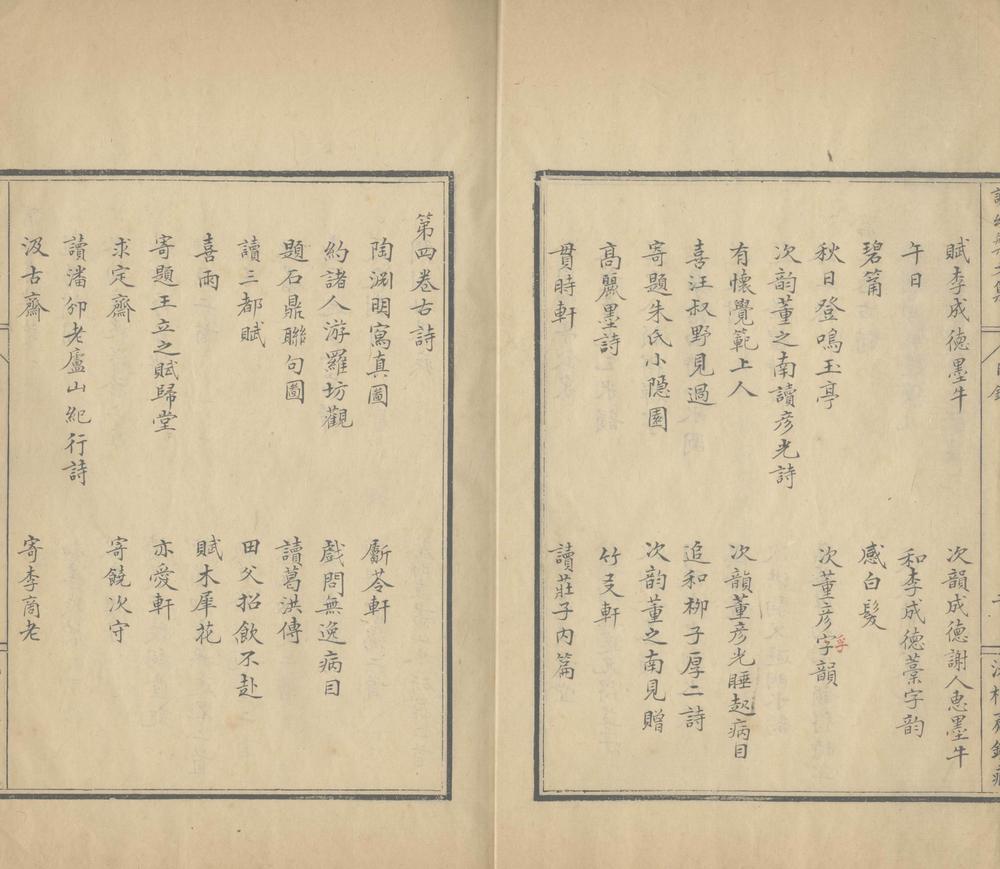 賦李成德墨牛
次韻成德謝人惠墨牛
午日
和李成德藁字韵
碧筩
感白髮
秋日登鳴玉亭
次董彦字韻
孚
次韵董之南讀彦光詩
有懷覺範上人
次韻董彦光睡起病目
喜汪叔野見過
追和柳子厚二詩
寄題朱氏小隱園
次韵董之南見贈
高麗墨詩
竹叟軒
貫時軒
讀莊子内篇
第四卷古詩
陶淵明寫真圖
斸苓軒
約諸人游羅坊觀
戲問無逸病目
題石鼎聯句圖
讀葛洪傳
讀三都賦
田父招飲不赴
喜雨
賦木犀花
寄題王立之賦歸堂
亦愛軒
求定齋
寄饒次守
讀潘邠老廬山紀行詩
汲古齋
寄李商老